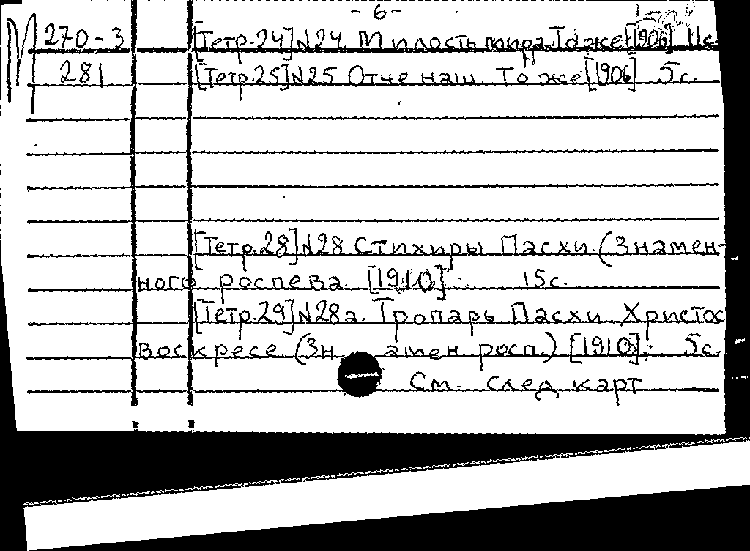 - 6 -
М 270-3 [Тетр.24] N24. Милость мира. То же [1906] 11с.
281 [Тетр.25] N25 Отче наш. То же [1906] 5с.
[Тетр.28] N28 Стихиры Пасхи. (Знамен-
ного роспева. [1910]. 15с.
[Тетр.29] N28а. Тропарь Пасхи Христос
воскресе (Знамен. росп.) [1910]. 5с.
См. след карт